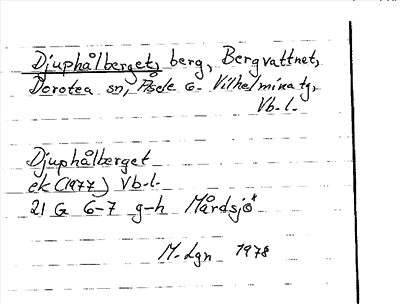 Djuphålberget, berg, Bergvattnet,
Dorotea sn, Åsele o. Vilhelmina tg,
Vb.l.
Djuphålberget
ek (1977) Vb.l.
21 G 6-7 g-h Mårdsjö*
M. Lgn 1978